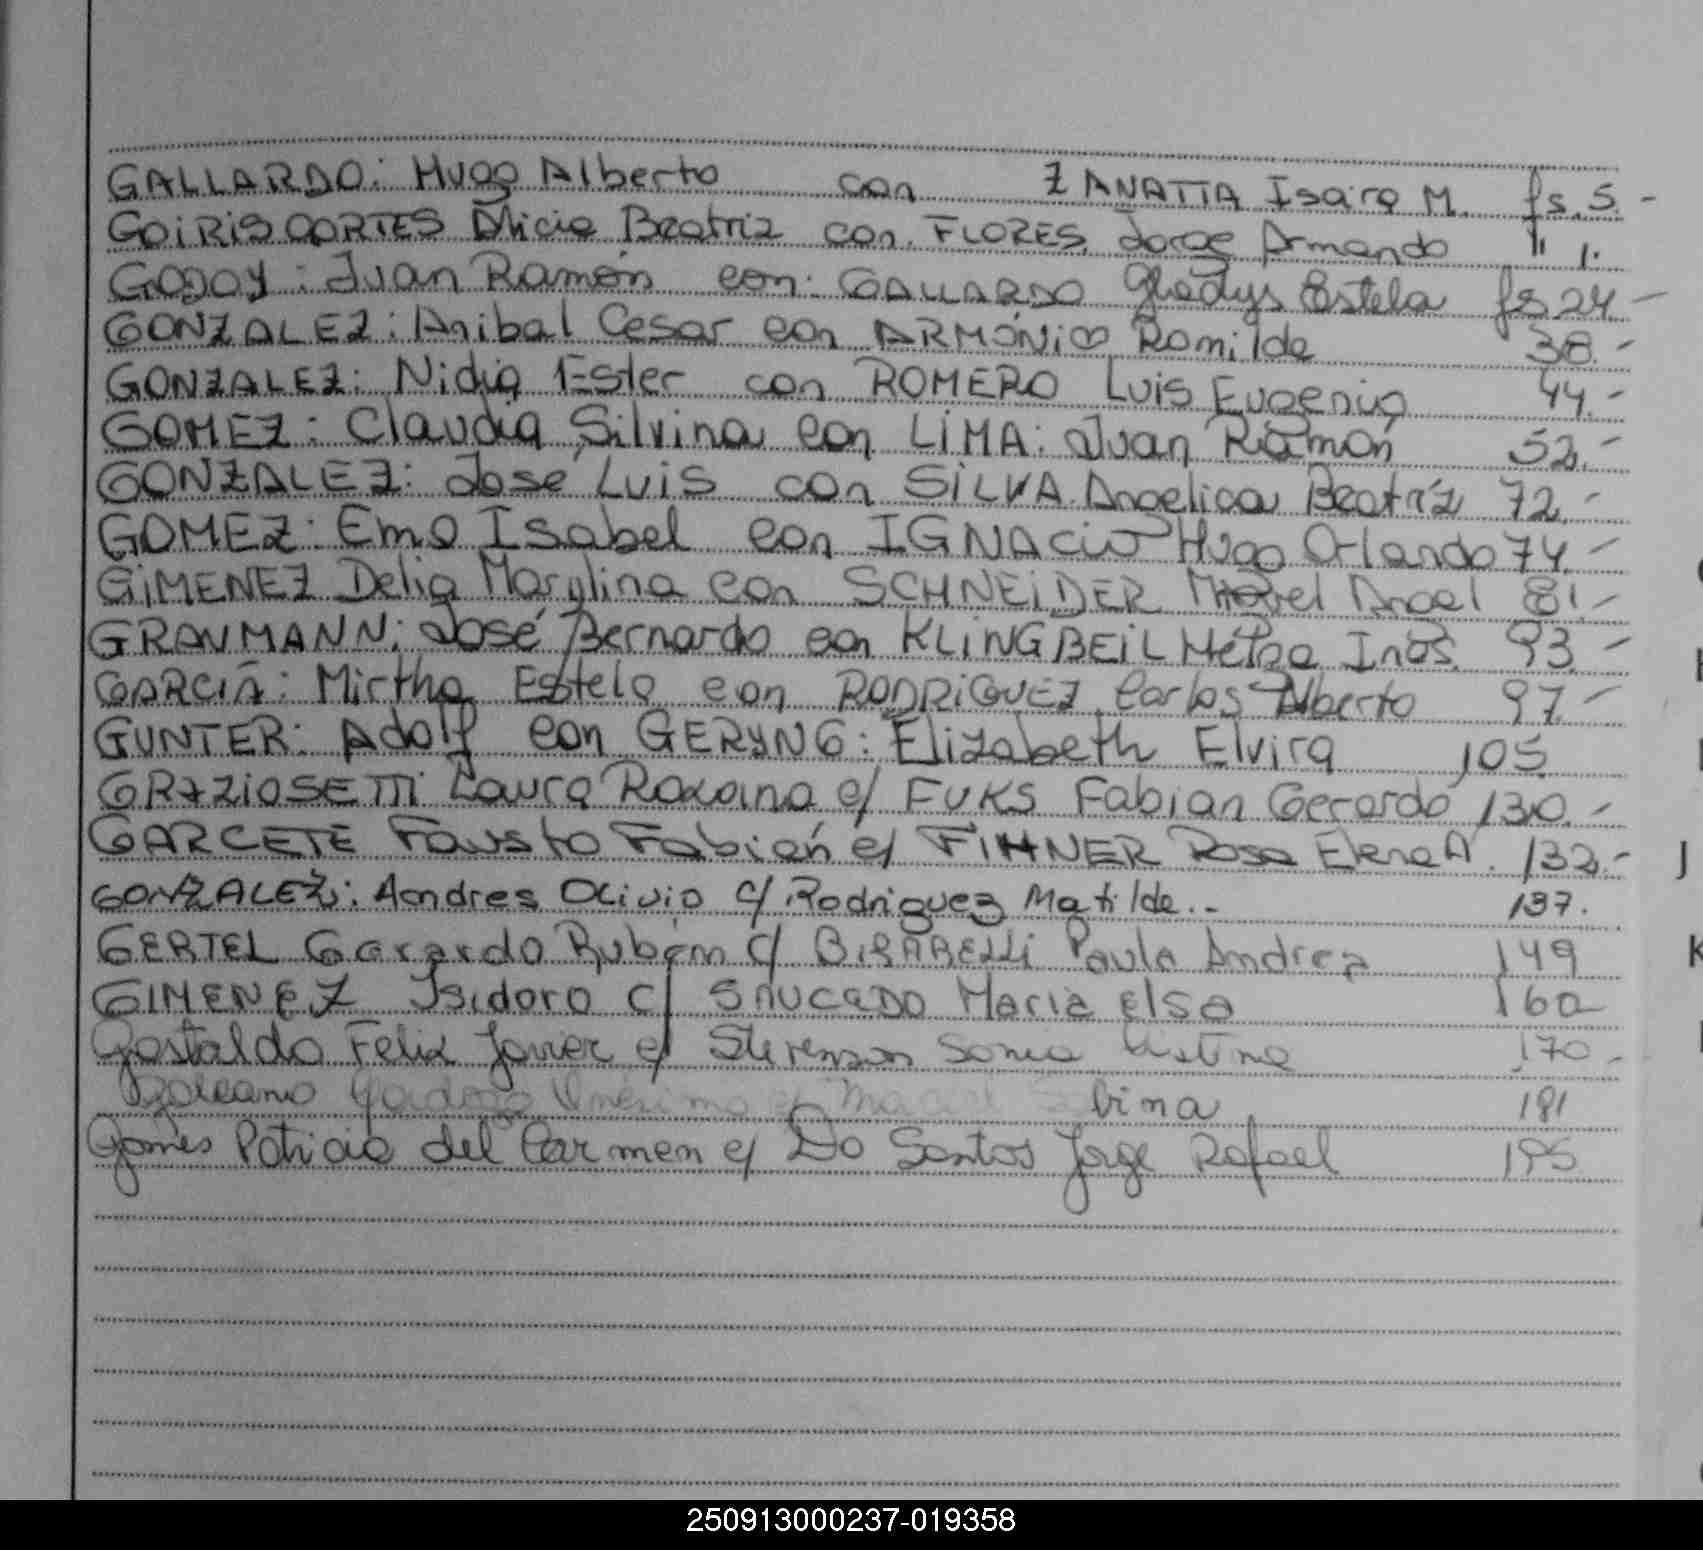 GALLARDO: Hugo Alberto con ZANATTA Isaira M. fs. 5.-
GOIRIS CORTES Alicia Beatriz con. FLORES, Jorge Armando " 1.
GODOY: Juan Ramón con: GALLARDO Gladys Estela fs 24.-
GONZALEZ: Anibal Cesar con ARMÓNICO Romilda 38.-
GONZALEZ: Nidia Ester con ROMERO Luis Eugenio 44.-
GOMEZ: Claudia Silvina con LIMA: Juan Ramón 52.-
GONZALEZ: Jose Luis con SILVA Angelica Beatríz 72.-
GOMEZ: Ema Isabel con IGNACIO Hugo Orlando 74.-
GIMENEZ Delia con SCHNEIDER Angel 81.-
GRAUMANN: José Bernardo con KLINGBEIL Inés 93.-
GARCIA: Mirtha Estela con RODRIGUEZ Carlos Alberto 97.-
GUNTER: Adolf con GERYNG: Elizabeth Elvira 105.
GRAZIOSETTI Laura Roxana c/ FUKS Fabian Gerardo 130.-
GARCETE Fausto Fabián c/ FIHNER Rosa Elena A. 132.-
GONZALEZ: Andres Olivio c/ Rodriguez Matilde.- 137.
GERTEL Gerardo Rubém c/ BIRABELLI Paula Andrea 149
GIMENEZ Isidoro c/ SAUCEDO Maria Elsa 160
Gastaldo Felix Javier c/ Stevenson Sonia Cristina 170.-
Galeano c/ 181
Gomes Patricia del Carmen c/ Do Santos Jorge Rafael 195
J
K
250913000237-019358